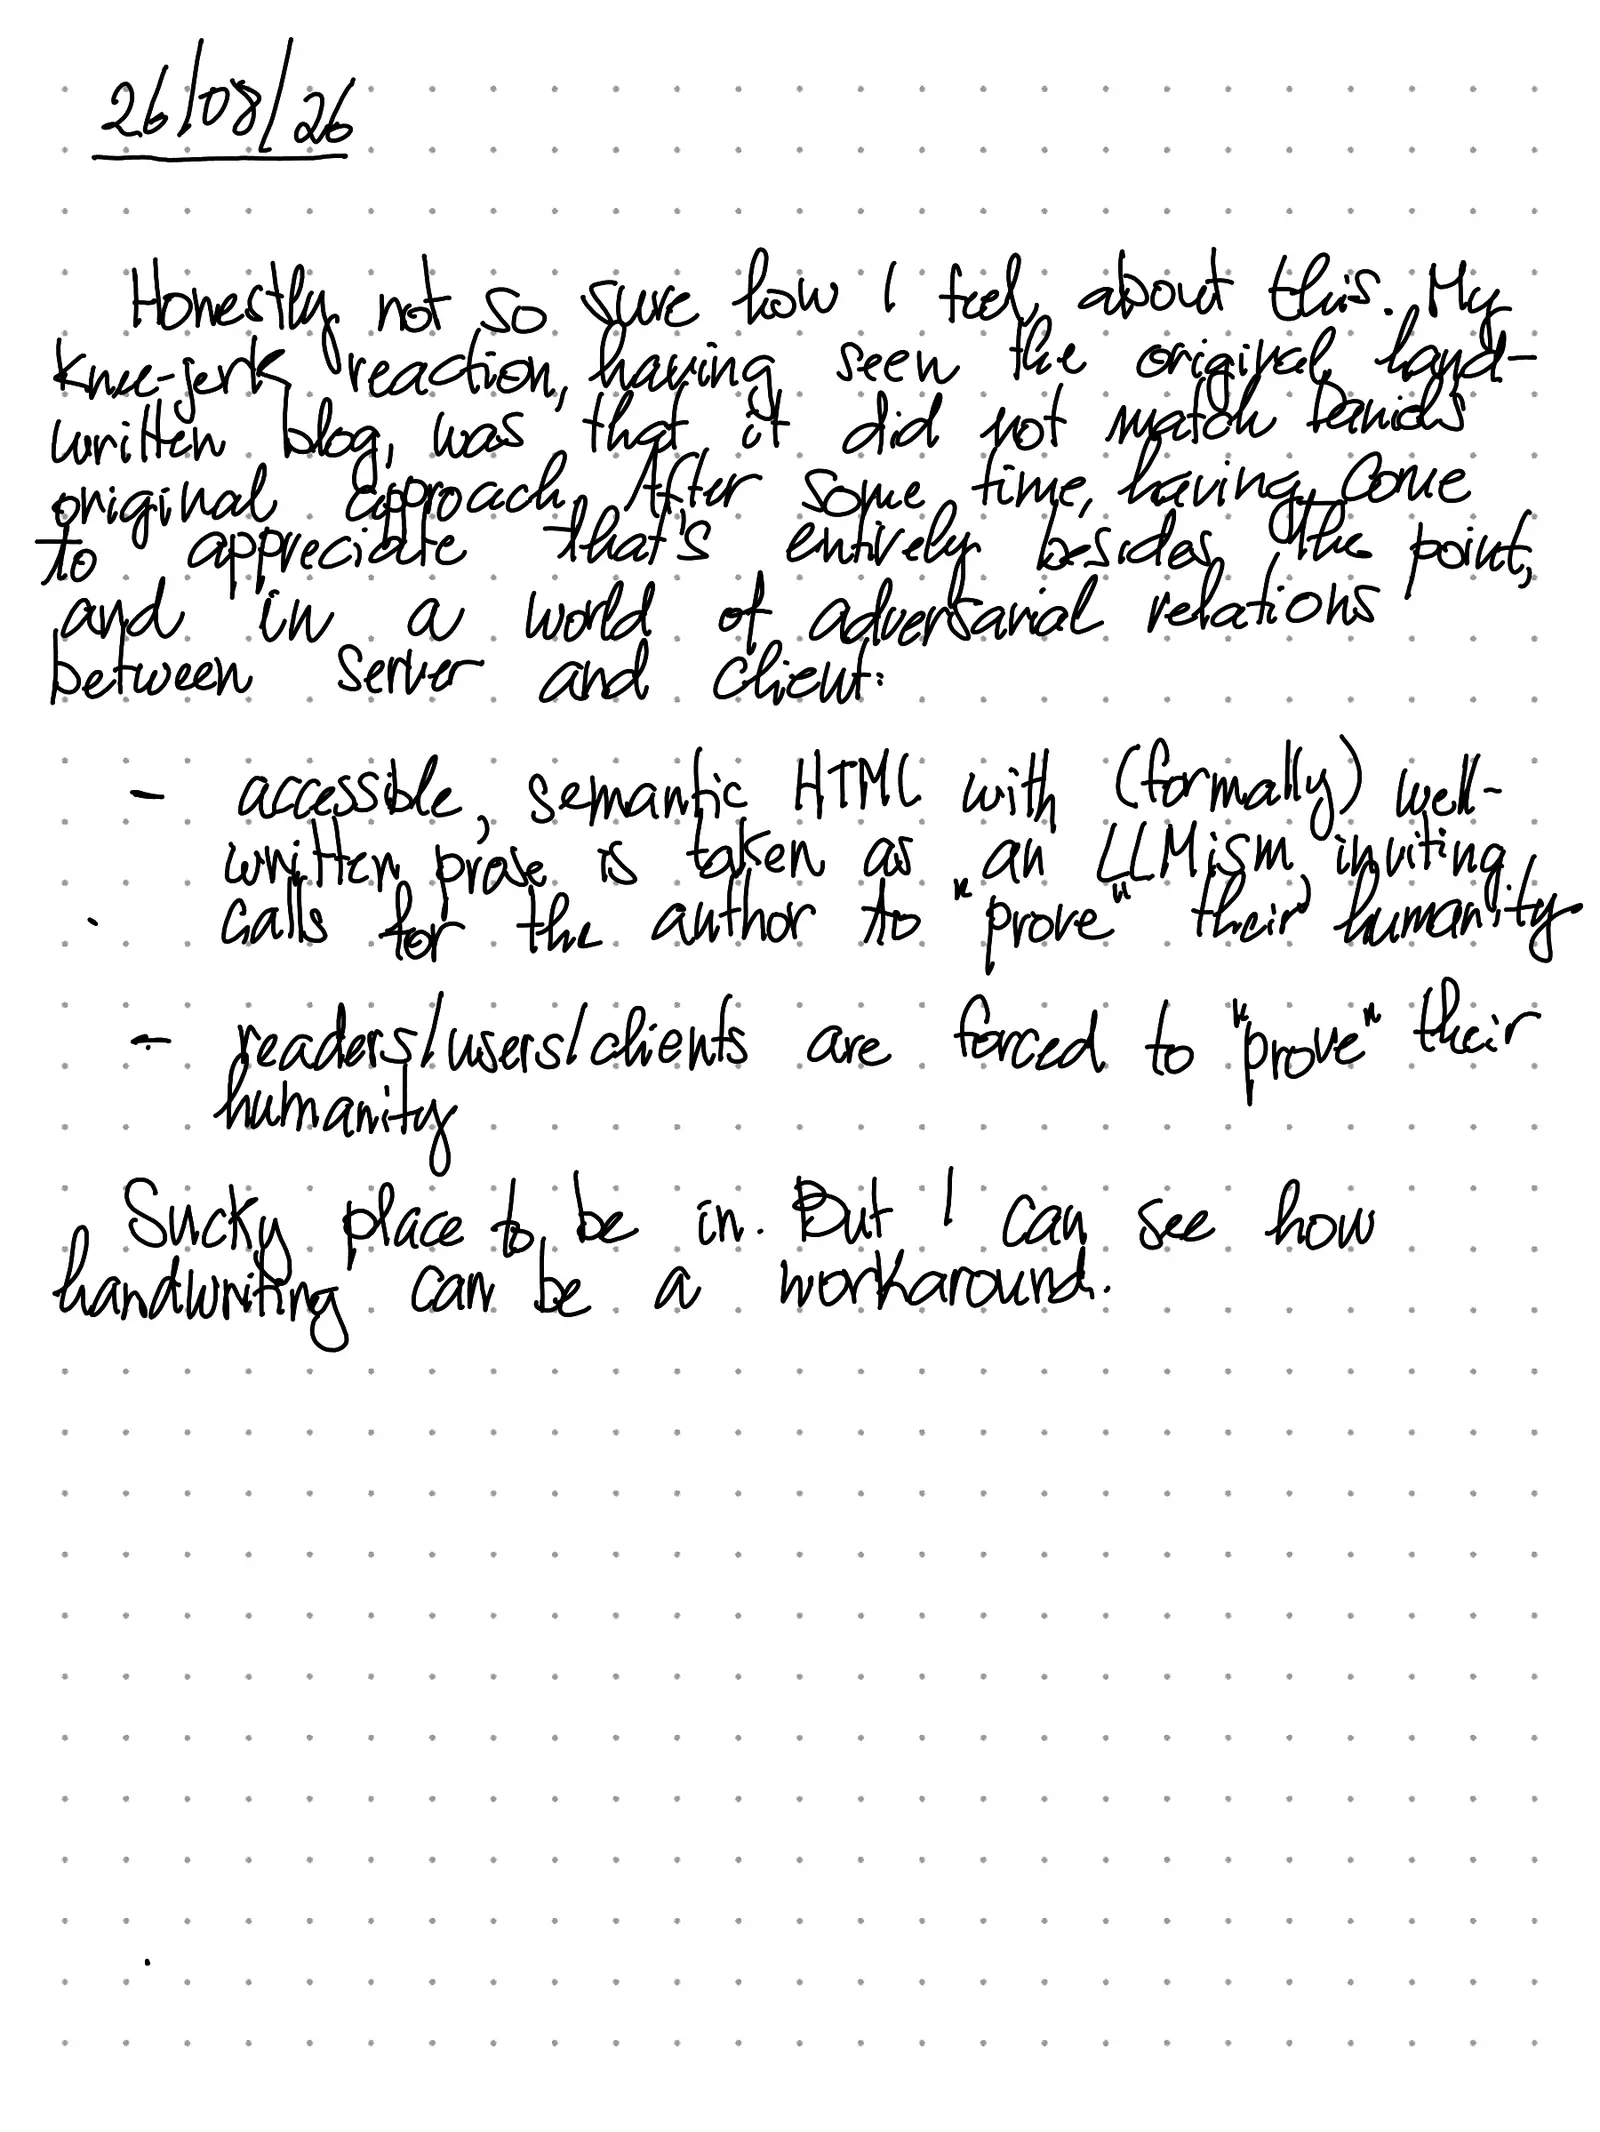 26/08/26
Honestly not so sure how I feel about this. My
knee-jerk reaction, having seen the original hand-
written blog, was that it did not match Daniel's
original approach. After some time, having come
to appreciate that's entirely besides the point,
and in a world of adversarial relations
between server and client:
- accessible, semantic HTML with (formally) well-
written prose is taken as an LLMism inviting
calls for the author to "prove" their humanity
- readers/users/clients are forced to "prove" their
humanity
Sucky place to be in. But I can see how
handwriting can be a workaround.